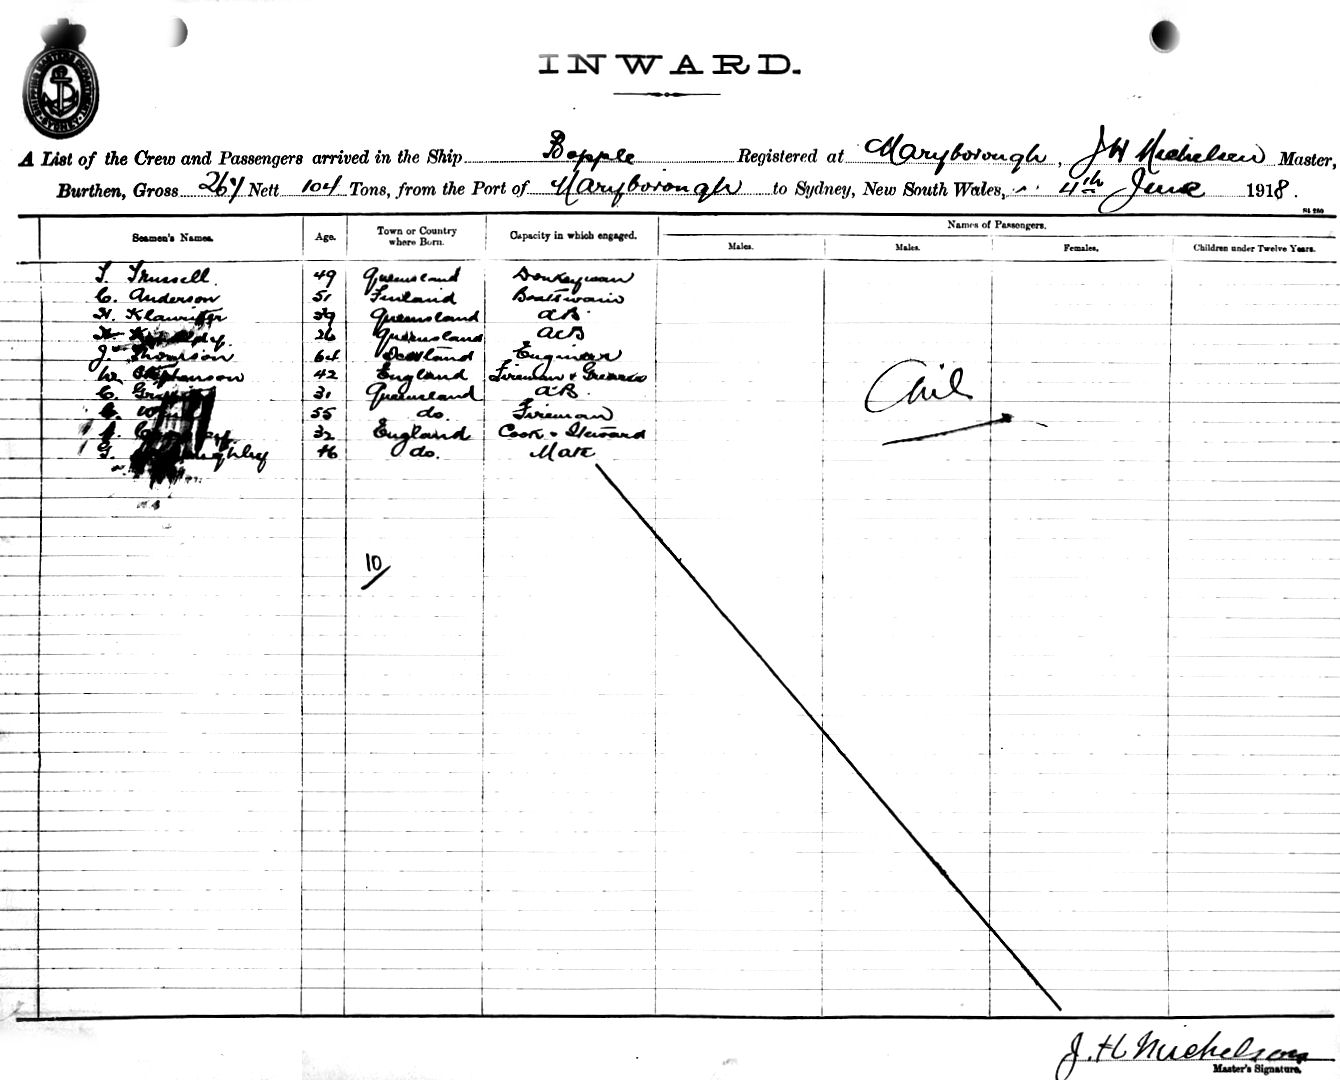 INWARD.
A List of the Crew and Passengers arrived in the Ship Bopple Registered at Maryborough, J H Michelsen Master,
Burthen, Gross 267 Nett 104 Tons, from the Port of Maryborough to Sydney, New South Wales, 4th June 1918.
Seamen's Names. Age. Town or Country where Born. Capacity in which engaged. Names of Passengers.
Males. Males. Females. Children under Twelve Years.
T. Trussell 49 Queensland Donkeyman
C. Anderson 51 Finland Boatswain
H. Klawitter 39 Queensland AB.
26 Queensland AB
J. Thompson 64 Scotland Engineer
W. Stephenson 42 England Fireman + Greaser
C. 31 Queensland AB.
55 do. Fireman
32 England Cook + Steward
G. 46 do. Mate
Nil
10
J. H. Michelsen
Master's Signature.